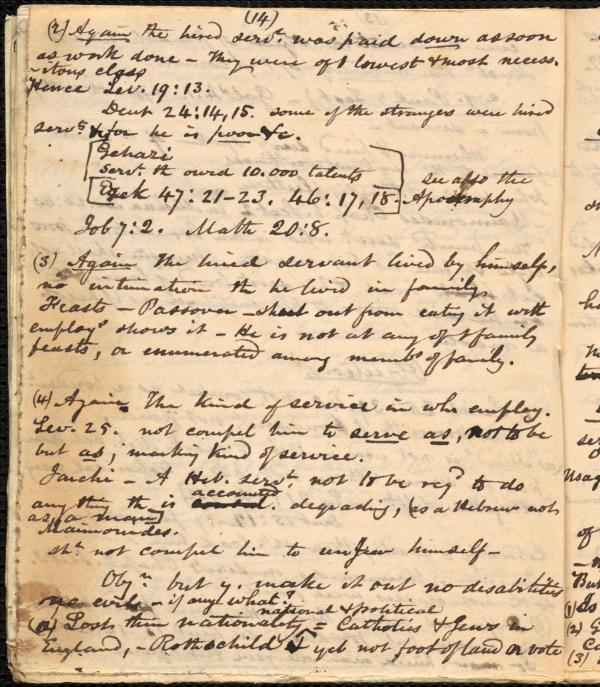 (14)
(2) Again the hired servt. was paid down as soon
as work done – They were oft lowest & most necess.
itous class
Hence Lev. 19:13.
Deut 24:14,15. some of the strangers were hired
servts & for he is poor &c.
Gehazi
servt. th owed 10.000 talents see also the
Ezek 47:21–23. 46:17,18. Apocrophy
Job 7:2. Math 20:8.
(3) Again The hired servant lived by himself,
no intimation th he lived in family.
Feasts – Passover – shut out from eating it with
employr shows it – He is not at any of t family
feasts, or enumerated among membs of family.
(4) Again The kind of service in wh employ.
Lev. 25. not compel him to serve as, not to be
but as; marking kind of service.
Jarchi – A Heb. servt. not to be reqd to do
any thing th is accounted degrading, (as a Hebrew not
as a man)
Maimonides.
sht. not compel him to unjew himself –
Objn. but y. make it out no disabilities
no evils – if any what?
national & political
(a) Lost their nationality = Catholics & Jews in
England, – Rothschild yet not foot of land or vote